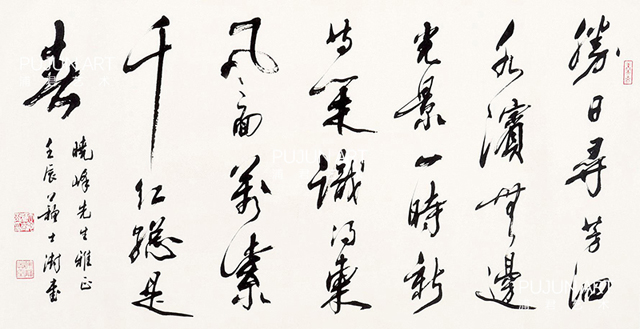 勝日尋芳泗
水濱無邊
光景一時新
等閒識得東
風面萬紫
千紅總是
春
曉峰先生雅正
壬辰蘇士澍書
PUJUN ART
PUJUN ART
PUJUN ART